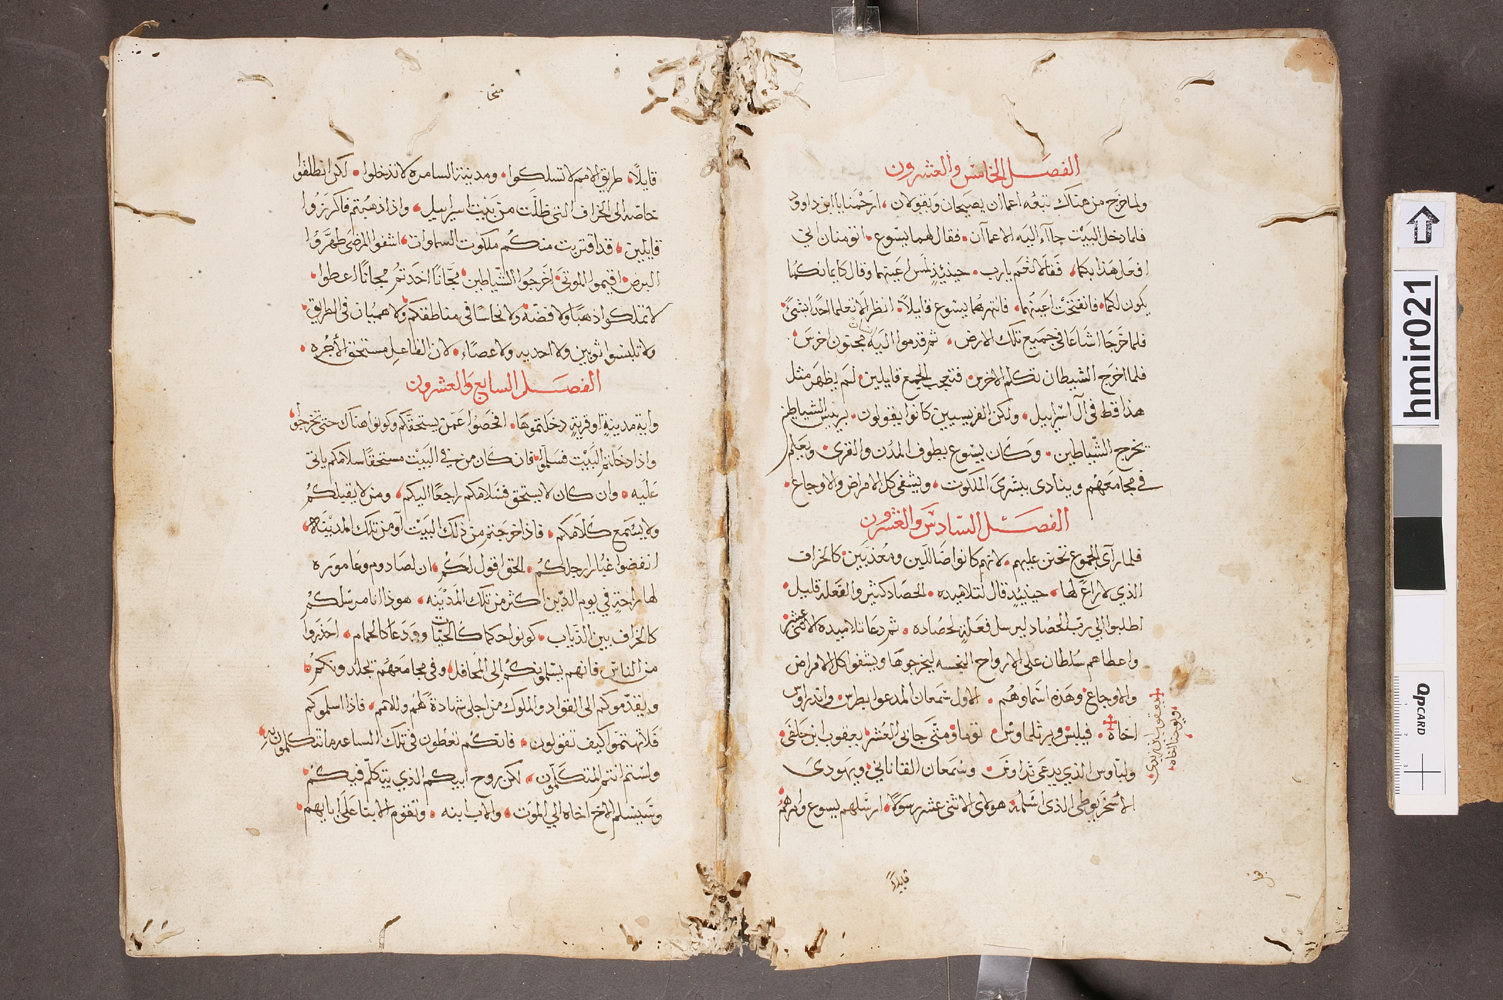 الفصل الخامس والعشرون
ولما خرج من هناك تبعه اعمان يصيحان ويقولان ارحمنا يا ابن داوود
فلما دخل البيت جاآ اليه الاعمان فقال لهما يسوع اتومنان اني
افعل هذا بكما فقالا نعم يارب حينيذ لمس اعينهما وقال كايمانكما
يكون لكما فانفتحت اعينهما فانتهرهما يسوع قايلا انظرا لا تعلما احدا بشي
فلما خرجا اشاعا في جميع تلك الارض ثم قدموا اليه مجنون اخرس
فلما اخرج الشيطان تكلم الاخرس فتعجب الجمع قايلين لم يظهر مثل
هذا قط في آل اسراييل ولكن الفريسيين كانوا يقولون بريس الشياطين
يخرج الشياطين وكان يسوع يطوف المدن والقرى ويعلم
في مجامعهم وينادى ببشرى الملكوت ويشفى كل الامراض والاوجاع
الفصل السادس والعشرون
فلما رآى الجموع تحنن عليهم لانهم كانوا ضالين ومعذبين كالخراف
الذي لا راع لها حينيذ قال لتلاميده الحصاد كثير والفعله قليل
اطلبوا الى رب الحصاد ليرسل فعله لحصاده ثم دعا تلاميده الاثنى عشر
واعطاهم سلطان على الارواح النجسه ليخرجوها ويشفوا كل الامراض
والاوجاع وهذه اسماوهم الاول شمعان المدعوا بطرس واندراوس
اخاه فيلبس وبرتلماوس توما ومتى جابى العشر يعقوب ابن حلفى
ولباوس الذي يدعى تداوس وسمعان القاناني ويهودى
الاسخريوطي الذى اسلمه هولاي الاثنى عشر رسولا ارسلهم يسوع وامرهم
يعقوب ابن زبدى
ويوحنا اخاه
قايلا
متى
قايلا طريق الامم لا تسلكوا ومدينة السامرة لا تدخلوا لكن انطلقوا
خاصة الى الخراف التى ظلت من بيت اسراييل واذا ذهبتم فاكرزوا
قايلين قد اقتربت منكم ملكوت السماوات اشفوا المرضى طهروا
البرص اقيموا الموتى اخرجوا الشياطين مجانا اخدتم مجانا اعطوا
لا تملكوا ذهبا ولا فضة ولا نحاسا في مناطقكم ولا هميان في الطريق
ولا تلبسوا ثوبين ولا احديه ولا عصاء لان الفاعل مستحق الأجره
الفصل السابع والعشرون
واية مدينة او قرية دخلتموها افحصوا عمن يستحقكم وكونوا هناك حتى تخرجوا
واذا دخلتم البيت فسلموا فان كان من في البيت مستحقا سلامكم ياتى
عليه وان كان لا يستحق فسلامكم راجعا اليكم ومن لا يقبلكم
ولا يسمع كلامكم فاذا خرجتم من ذلك البيت او من تلك المدينه
انفضوا غبار ارجلكم الحق اقول لكم ان لصادوم وغامورة
لها راحة في يوم الدين اكثر من تلك المدينه هوذا انا مرسلكم
كالخراف بين الذياب كونوا حكما كالحيات وودعا كالحمام احذروا
من الناس فانهم يسلمونكم الى المحافل وفى مجامعهم تجلدونكم
ويقدموكم الى القواد والملوك من اجلى شهادة لهم وللامم فاذا اسلموكم
فلا تهتموا كيف تقولون فانكم تعطون في تلك الساعه ما تتكلمون به
ولستم انتم المتكلمون لكن روح ابيكم الذي يتكلم فيكم
وسيسلم الاخ اخاه الي الموت والاب ابنه وتقوم الابنا على ابايهم
hmir021
QPCARD